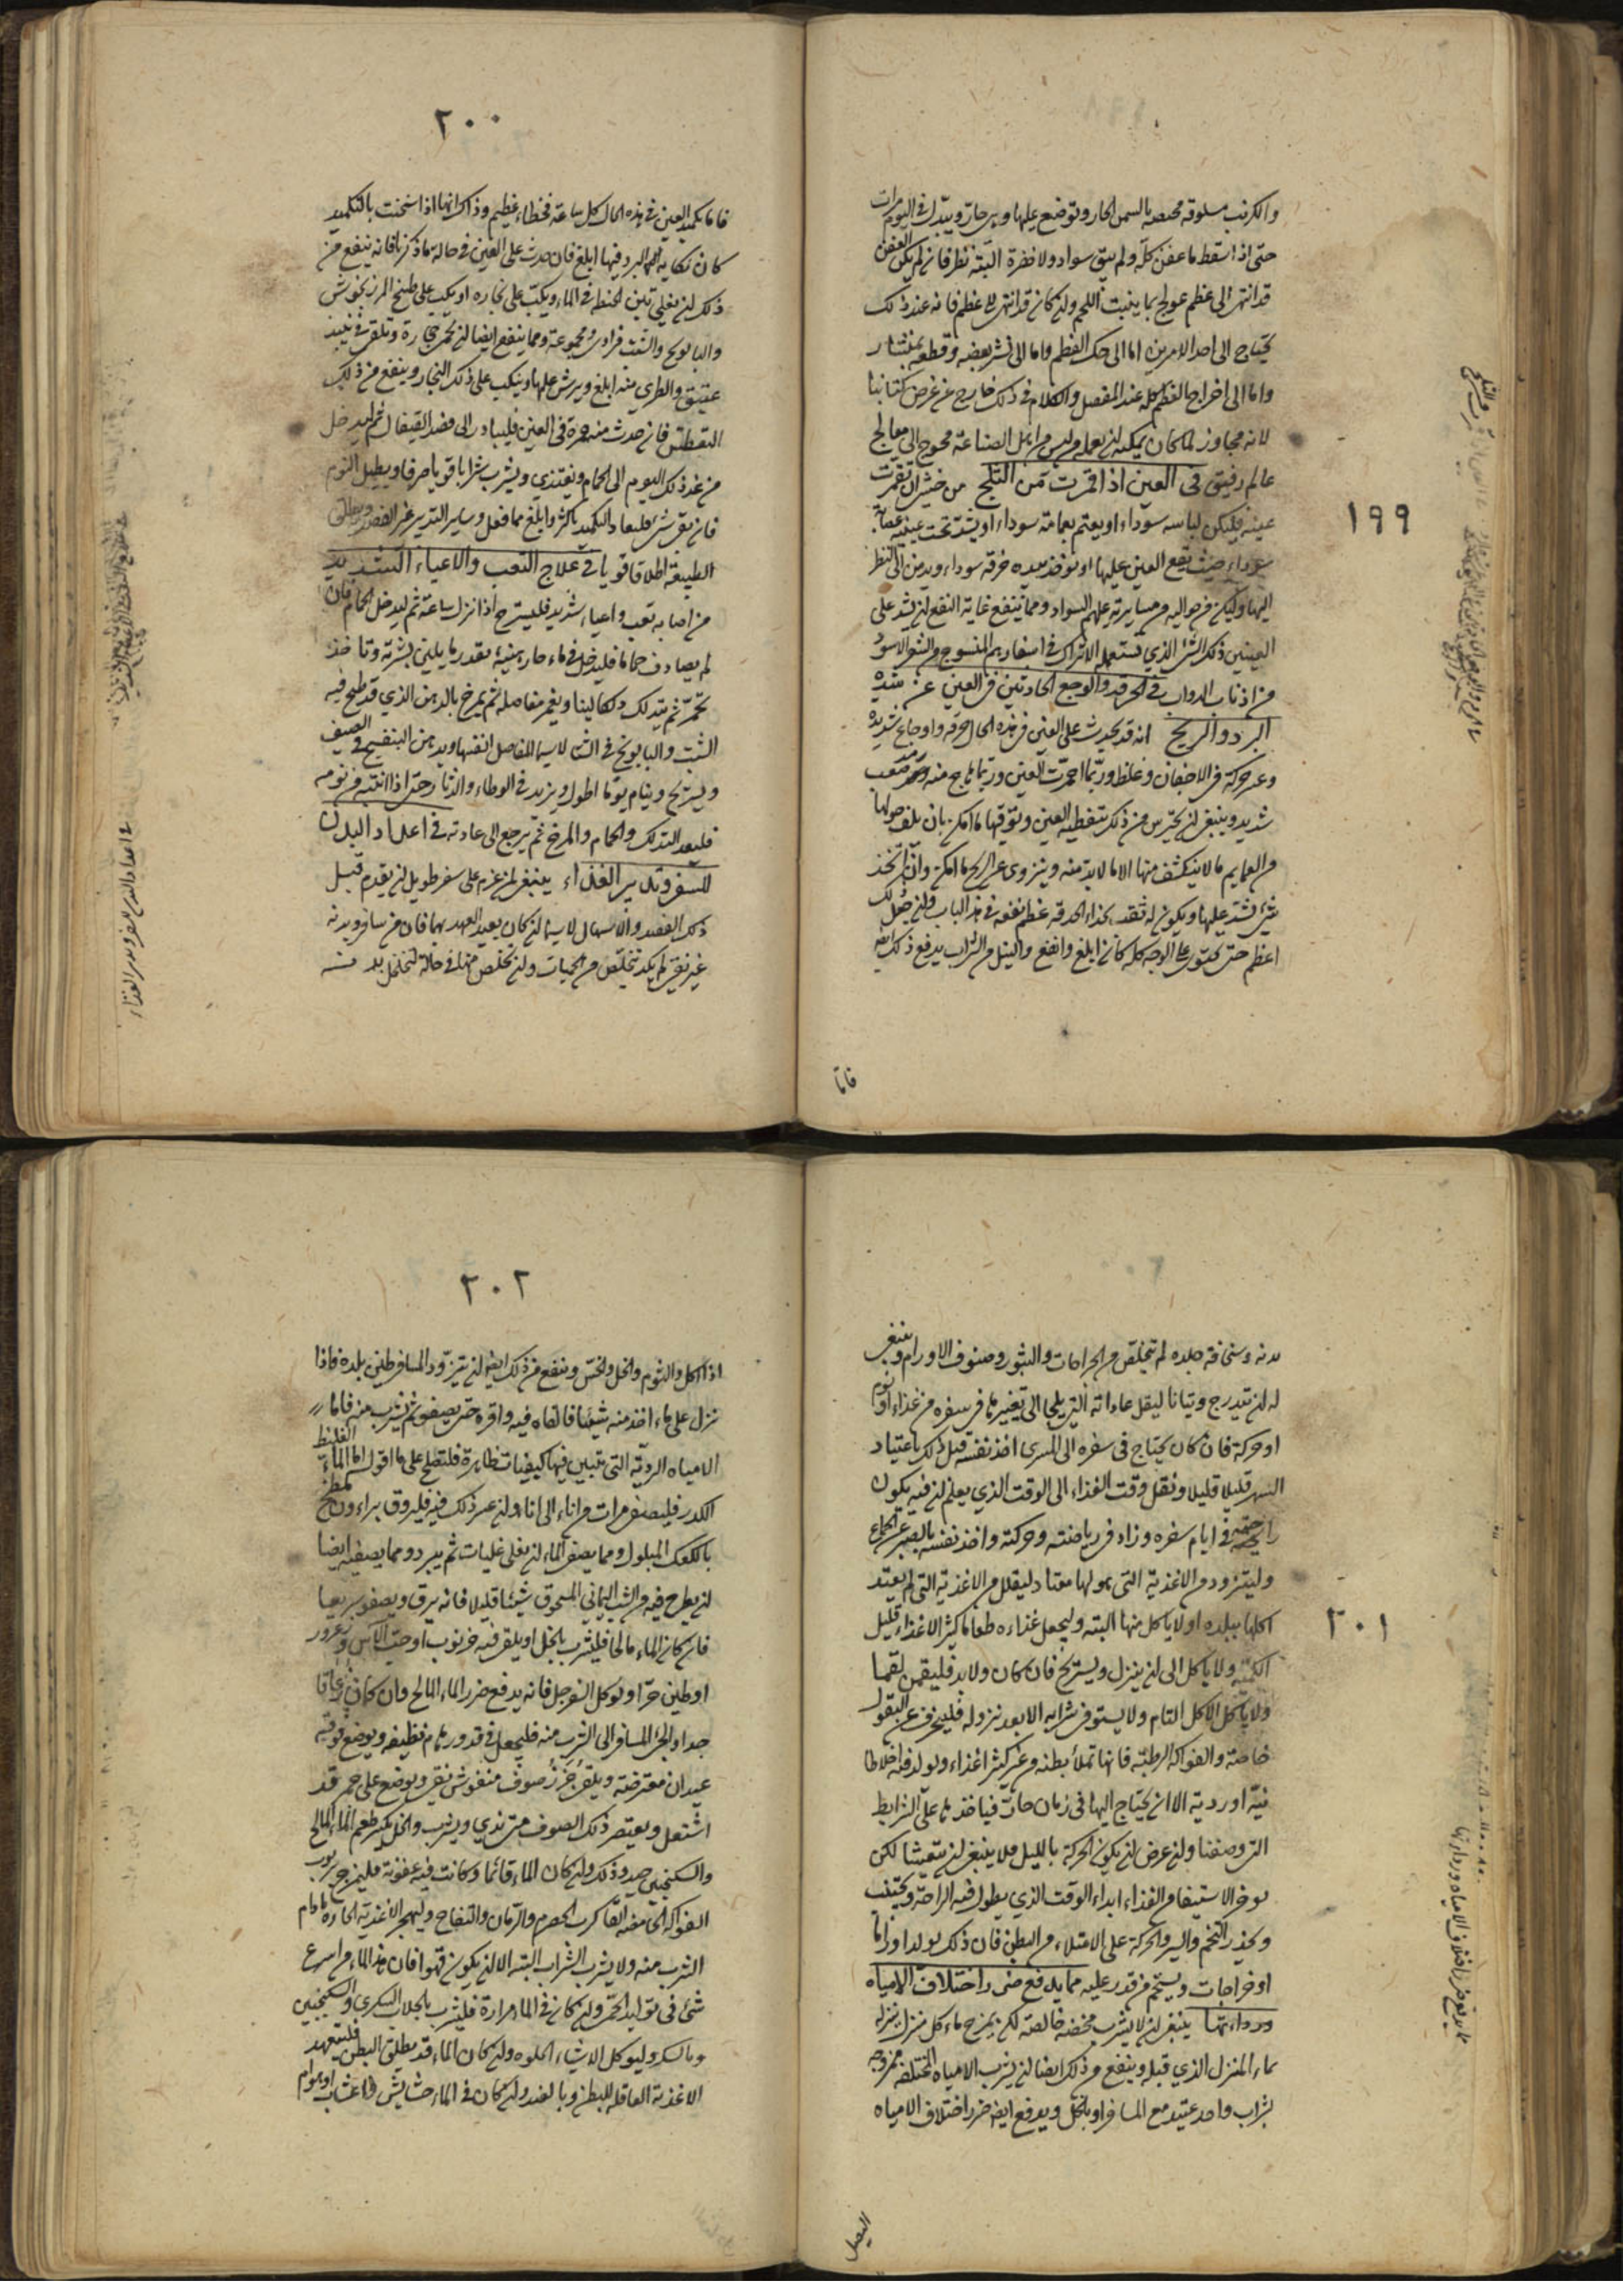 ١٩٩
والكرنب مسلوقه مخبصه بالسمن الحار وتوضع عليها وهى حارة ويبدل فى اليوم مرات
حتى اذا اسقط ما عفن كله ولم يبق سواد ولا خضرة البتة نظر فان لم يكن العفن
قد انتهى الى عظم عولج بما ينبت اللحم وان كان قد انتهى الى عظم فانه عند ذلك
يحتاج الى احد الامرين اما الى حك العظم واما الى نشر بعضه وقطعه بمنشار
واما الى اخراج العظم كله عند المفصل والكلام فى ذلك خارج عن غرض كتابنا
لانه مجاوز لما كان يمكنه ان يعمله من ليس من اهل الصناعة محوج الى معالج
عالم رفيق فى العين اذا قمرت من الثلج من خشى ان تقمرت
عينه فليكن لباسه سوداء او يعتم بعمامة سوداء او يشد تحت عينيه عصابة
سوداء حيث تقع العين عليها او يوخذ بيده خرقه سوداء ويدمن النظر
اليها وليكن من حواليه من مسايرته عليهم السواد ومما ينفع غاية النفع ان يشد على
العينين ذلك الشئ الذي تستعمله الاتراك فى اسفارهم المنسوج من الشعر الاسود
من اذناب الدواب فى الحرقه والوجع الحادثين فى العين عن شدة
البرد والريح انه قد يحدث على العين فى هذه الحال حرقه واوجاع شديده
وعسر حركة فى الاجفان وغلظ وربما احمرت العين وربما هاج منه رمد صعب
شديد وينبغى ان يحترس من ذلك بتغطية العين وتوقيها ما امكن بان يلف حولها
من العمايم ما لا ينكشف منها الا ما لا بد منه وينزوى عن الريح ما امكن وان اتخذ
شئ يشد عليها ويكون له ثقب بحذاء الحدقه عظم نفعه فى هذا الباب وان جعل ذلك
اعظم حتى يحتوى على الوجه كله كان ابلغ وانفع والنيل من الشراب يدفع ذلك ايضا
فاما
٢٠٠
فاما تكميد العين فى هذه الحال كل ساعة فخطاء عظيم وذلك انها اذا سخنت بالتكميد
كان نكاية البرد فيها ابلغ فان حدث على العين فى حاله ما ذكرنا فانه ينفع من
ذلك ان يغلى تبن الحنطه فى الماء ويكب على بخاره او يكب على طبيخ المرزنجوش
والبابونج والشبت فرادى ومجموعة ومما ينفع ايضا ان تحمى حجارة وتلقى فى نبيذ
عتيق والطرى منه ابلغ ويرش عليها وينكب على ذلك البخار وينفع من ذلك
التعطش فان حدث منه حمرة فى العين فليبادر الى فصد القيفال ثم ليدخل
من غد ذلك اليوم الى الحمام ويغتذى ويشرب شرابا قويا صرفا ويطيل النوم
فان بقى شئ فليعاد التكميد باكثر وابلغ مما فعل وساير التدبير غير الفصد ويطلق
الطبيعة اطلاقا قويا فى علاج التعب والاعياء الشديد
من اصابه تعب واعياء شديد فليسترح اذا نزل ساعة ثم ليدخل الحمام فان
لم يصادف حماما فليدخل فى ماء حار هنيئة بقدر ما يلين بشرته وتاخذ
تحمر ثم يتدلك دلكا لينا ويغمز مفاصله ثم يمرخ بالدهن الذي قد طبخ فيه
الشبت والبابونج فى الشتاء لاسيما المفاصل انفسها وبدهن البنفسج فى الصيف
ويستريح وينام يوما اطول ويزيد فى الوطاء والدثار حتى اذا انتبه من نومه
فليعد التدلك والحمام والمرخ ثم يرجع الى عادته فى اعداد البدن
للسفر وتدبير الغذاء ينبغى لمن عزم على سفر طويل ان يقدم قبل
ذلك الفصد والاسهال لاسيما ان كان بعيد العهد بهما فان من سافر وبدنه
غير نقى لم يكد يتخلص من الحميات وان تخلص منها فى حالة لتخلخل بدنه
فى اعداد البدن للسفر وتدبير الغذاء
٢٠١
بدنه وسخافة جلده لم يتخلص من الجراحات والبثور وصنوف الاورام وينبغى
له ان يتدرج ويتانا لينقل عاداته التى يلجا الى تغييرها فى سفره من غذاء او نوم
او حركة فان كان يحتاج فى سفره الى السرى اخذ نفسه قبل ذلك باعتياد
السهر قليلا قليلا ونقل وقت الغذاء الى الوقت الذي يعلم ان فيه يكون
راحته فى ايام سفره وزاد فى رياضته وحركته واخذ نفسه بالصبر عن الجماع
وليتزود من الاغذية التى هو لها معتاد ليقلل من الاغذية التى لم يعتد
اكلها ببلده او لا ياكل منها البته وليجعل غذاءه طعاما كثير الاغذاء قليل
الكمية ولا ياكل الى ان ينزل ويستريح فان كان ولا بد فليقمن لقما
ولا ياكل الاكل التام ولا يستوفى شرابه الا بعد نزوله فلينحرف عن البقول
خاصة والفواكه الرطبه فانها تملأ بطنه من غير كثير اغذاء ويولد فيه اخلاطا
نيّه او ردية الا ان يحتاج اليها فى زمان حار فياخذها على الشرايط
التى وصفنا وان عرض ان يكون الحركة بالليل فلا ينبغى ان يتعشا لكن
يوخر الاستيفاء من الغذاء ابداء الوقت الذي يطول فيه الراحة ويجتنب
ويحذر التخم والسير والحركة على الامتلاء من البطن فان ذلك يولد اوراما
او خراجات ويستحم من قدر عليه مما يدفع ضرر اختلاف الامياه
ورداءتها ينبغى ان لا يشرب محضه خالصة لكن يمزج ماء كل منزل ينزله
بماء المنزل الذي قبله وينفع من ذلك ايضا ان يشرب الامياه المختلفه ممزوجه
بشراب واحد عتيد مع المسافر او بالخل ويدفع ايضا ضرر اختلاف الامياه
البصل
مما يدفع ضرر اختلاف الامياه ورداءتها
٢٠٢
اذا اكل والثوم والخل والخس وينفع من ذلك ايضا ان يتزود المسافر طين بلده فاذا
نزل على ماء اخذ منه شيئا فالقاه فيه واقره حتى يصفو ثم يشرب منه فاما
الامياه الردية التى تتبين فيها كيفيات ظاهرة فلتصلح على ما اقول اما الماء الغليظ
الكدر فليصفى مرات من اناء الى اناء وان عسر ذلك فيه فليروق براووق مبطن
بالكعك المبلول ومما يصفى الماء ان يغلى غليات ثم يبرد ومما يصفيه ايضا
ان يطرح فيه من الشب اليمانى المسحوق شيئا قليلا فانه يرق ويصفو سريعا
فان كان الماء مالحا فليشرب بالخل او يلقى فيه خرنوب او حب الآس او زعرور
او طين حر او يوكل السفرجل فانه يدفع ضرر الماء المالح وان كان زعاقا
جدا والجئ المسافر الى الشرب منه فليجعل فى قدور برام نظيفه ويوضع فوقه
عيدان معترضة ويلقى جزز صوف منفوش نقى ويوضع على جمر قد
اشتعل ويعتصر ذلك الصوف متى ندي ويشرب والخل يكسر طعم الماء المالح
والسكنجبين جيد وذلك وان كان الماء قائما وكانت فيه عفونة فليمزج بربوب
الفواكه الحامضه القا كرب الحصرم والرمان والتفاح وليهجر الاغذية الحاره ما دام
الشرب منه ولا يشرب الشراب البته الا ان يكون قهوا فان هذا الماء من اسرع
شئ فى توليد الحمى وان كان فى الماء مرارة فليشرب بالجلاب السكرى والسكنجبين
وبالسكر وليوكل الاشياء الحلوه وان كان الماء قد يطلق البطن فليتعهد
الاغذية العاقله للبطن وبالضد وان كان فى الماء حشايش او اعشاب او هوام